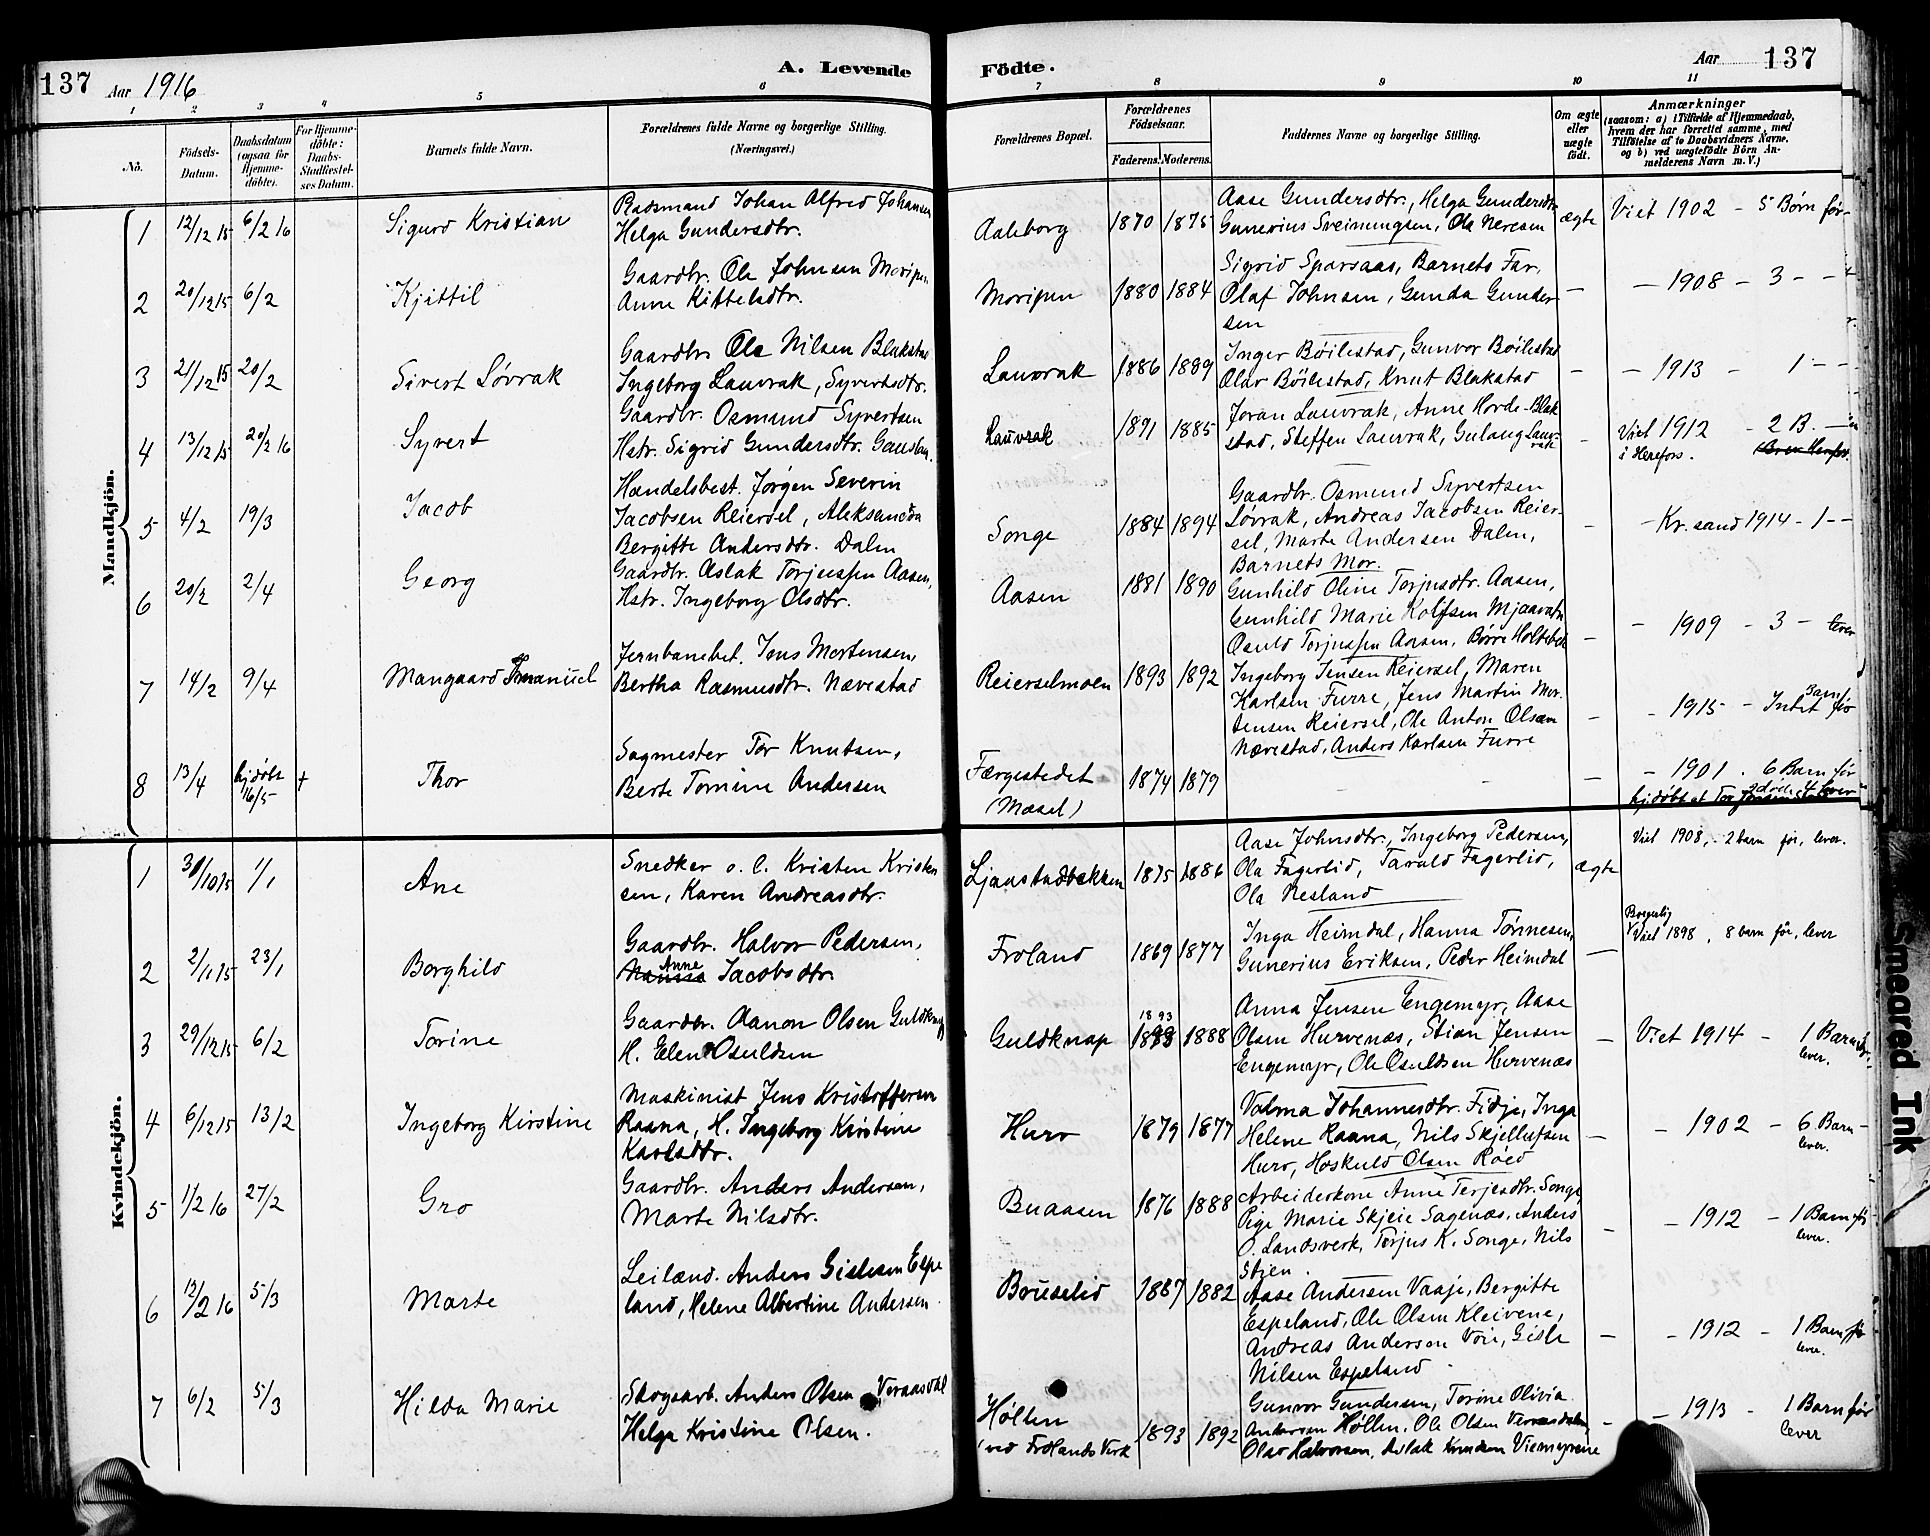 137 Aar 1916 A. Levende
Födte. Aar 137
1 2 3 4 5 6 7 8 9 10 11
No.
Födsels-
Datum.
Daabsdatum
(ogsaa for
Hjemme-
döbte).
For Hjemme-
döbte:
Daabs-
Stadfæstel-
ses Datum.
Barnets fulde Navn.
Forældrenes fulde Navne og borgerlige Stilling.
(Næringsvei.)
Forældrenes Bopæl.
Forældrenes
Födselsaar.
Faderens. Moderens.
Faddernes Navne og borgerlige Stilling.
Om ægte
eller
uægte
födt.
Anmærkninger
(saasom: a) i Tilfælde af Hjemmedaab,
hvem der har forrettet samme, med
Tilföielse af to Daabsvidners Navne,
og b) ved uægtefödte Börn An-
melderens Navn m. V.)
Mandkjön.
1 12/12 15 6/2 16 Sigurd Kristian
Johan Alfred Johansen
Helga Gundersdtr.
Aaleborg 1870 1875
Aase Gundersdtr., Helga Gundersdtr.
Gunerius Sveinungsen, Ola Neresen
ægte Viet 1902 - 5 Børn før
2 20/12 15 6/2 Kjittil
Gaardbr. Ole Johnsen Moripen
Anne Kittelsdtr.
Moripen 1880 1884
Sigrid Sparsaas, Barnets Far,
Olaf Johnsen, Gunda Gunder-
sen
— — 1908 - 3 - -
3 21/12 15 20/2 Sivert Løvrak
Gaardbr. Ole Nilsen Blakstad
Ingeborg Lauvrak, Syvertsdtr.
Lauvrak 1886 1889
Inger Bøilestad, Gunvor Bøilestad
Olav Bøilestad, Knut Blakstad
- - 1913 - 1 - -
4 13/12 15 20/2 16 Syvert
Gaardbr. Osmund Syvertsen
Hstr. Sigrid Gundersdtr.
Lauvrak 1891 1885
Joran Lauvrak, Anne Horde-Blak
stad, Steffen Lauvrak, Gulaug Lauv-
rak
- Viet 1912 - 2 B. -
i Herefos.
5 4/2 19/3 Jacob
Handelsbest. Jørgen Severin
Jacobsen Reiersel, Aleksandra
Bergitte Andersdtr. Dalen
Songe 1884 1894
Gaardbr. Osmund Syvertsen
Løvrak, Andreas Jacobsen Reier-
sel, Marte Andersen Dalen,
Barnets Mor.
- - Kr.sand 1914 - 1 - -
6 20/2 2/4 Georg
Gaardbr. Aslak Torjussen Aasen,
Hstr. Ingeborg Olsdtr.
Aasen 1881 1890
Gunhild Oline Torjusdtr. Aasen,
Gunhild Marie Kolfsen Mjaavatn
Osuld Torjussen Aasen, Børre Holtebek
- - 1909 - 3 - lever
7 14/2 9/4 Mangaard Emanuel
Jernbanebet. Jens Mortensen,
Bertha Rasmusdtr. Nævestad
Reierselmoen 1893 1892
Ingeborg Jensen Reiersel, Maren
Karlsen Furre, Jens Martin Mor-
tensen Reiersel, Ole Anton Olsen
Nævestad, Anders Karlsen Furre
- - 1915 - Intet Barn før
8 13/4 hjdøbt 16/5 + Thor
Sagmester Tor Knutsen,
Berte Tomine Andersen
Færgestedet
(Mæsel)
1874 1879
- - - 1901 . 6 Barn før
2 døde 4 lever
Kvindekjön.
1 30/10 15 1/1 Ane
Snedker o. l. Kristen Kristen
sen, Karen Andreasdtr.
Ljaastadbekken 1875 1886
Aase Johnsdtr., Ingeborg Pedersen,
Ola Fagerlid, Tarald Fagerlid,
Ola Nesland
ægte Viet 1908, - 2 barn før, lever.
2 2/11 15 23/1 Borghild
Gaardbr. Halvor Pedersen,
Anne Jacobsdtr.
Froland 1869 1877
Inga Heimdal, Hanna Tønnesen,
Gunerius Eriksen, Peder Heimdal
- Borgerlig
Viet 1898, 8 barn før, lever
3 29/12 15 6/2 Torine
Gaardbr. Aanon Olsen Guldknap
H. Elen Osuldsen
Guldknap 1893 1888
Anna Jensen Engemyr, Aase
Olsen Hurvenæs, Stian Jensen
Engemyr, Ole Osuldsen Hurvenæs
- Viet 1914 - 1 Barn før.
lever.
4 6/12 15 13/2 Ingeborg Kirstine
Maskinist Jens Kristoffersen
Raana, H. Ingeborg Kirstine
Karlsdtr.
Hurv 1879 1877
Valma Johannesdtr. Fidje, Inga
Helene Raana, Nils Skjellufsen
Hurv, Hoskuld Olsen Røed
- - 1902 - 6 Barn -
lever.
5 1/2 16 27/2 Gro
Gaardbr. Anders Andersen,
Marte Nilsdtr.
Buaasen 1876 1888
Arbeiderkone Anne Terjesdtr. Songe,
Pige Marie Skjeie Sagenæs, Anders
O. Landsverk, Terjus K. Songe, Nils
Stien.
- - 1912 - 1 Barn før
lever.
6 12/2 16 5/3 Marte
Leilænd. Anders Gislesen Espe
land, Helene Albertine Andersen.
Bouselid 1887 1882
Aase Andersen Vaaje, Bergitte
Espeland, Ole Olsen Kleivene,
Andreas Andersen Voie, Gisle
Nilsen Espeland
- - 1912 - 1 Barn før
lever.
7 6/2 5/3 Hilda Marie
Skogsarb. Anders Olsen Veraasdal
Helga Kristine Olsen.
Høllen
(ved Frolands Verk
1893 1892
Gunvor Gundersen, Torine Olivia
Andersen Høllen, Ole Olsen Veraasdalen,
Olav Halvorsen, Aslak Knudsen Viemyrene
- - 1913 - 1 Barn før
lever
Smeared Ink